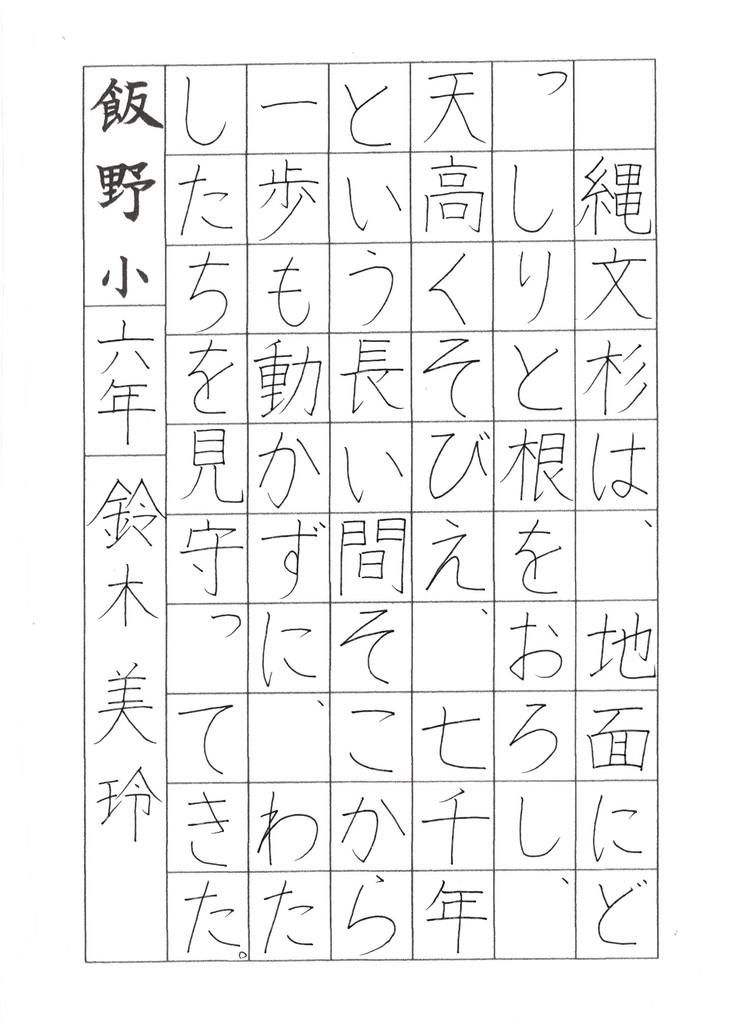 縄文杉は、地面にど
っしりと根をおろし、
天高くそびえ、七千年
という長い間そこから
一歩も動かずに、わた
したちを見守ってきた。
飯野小六年鈴木美玲